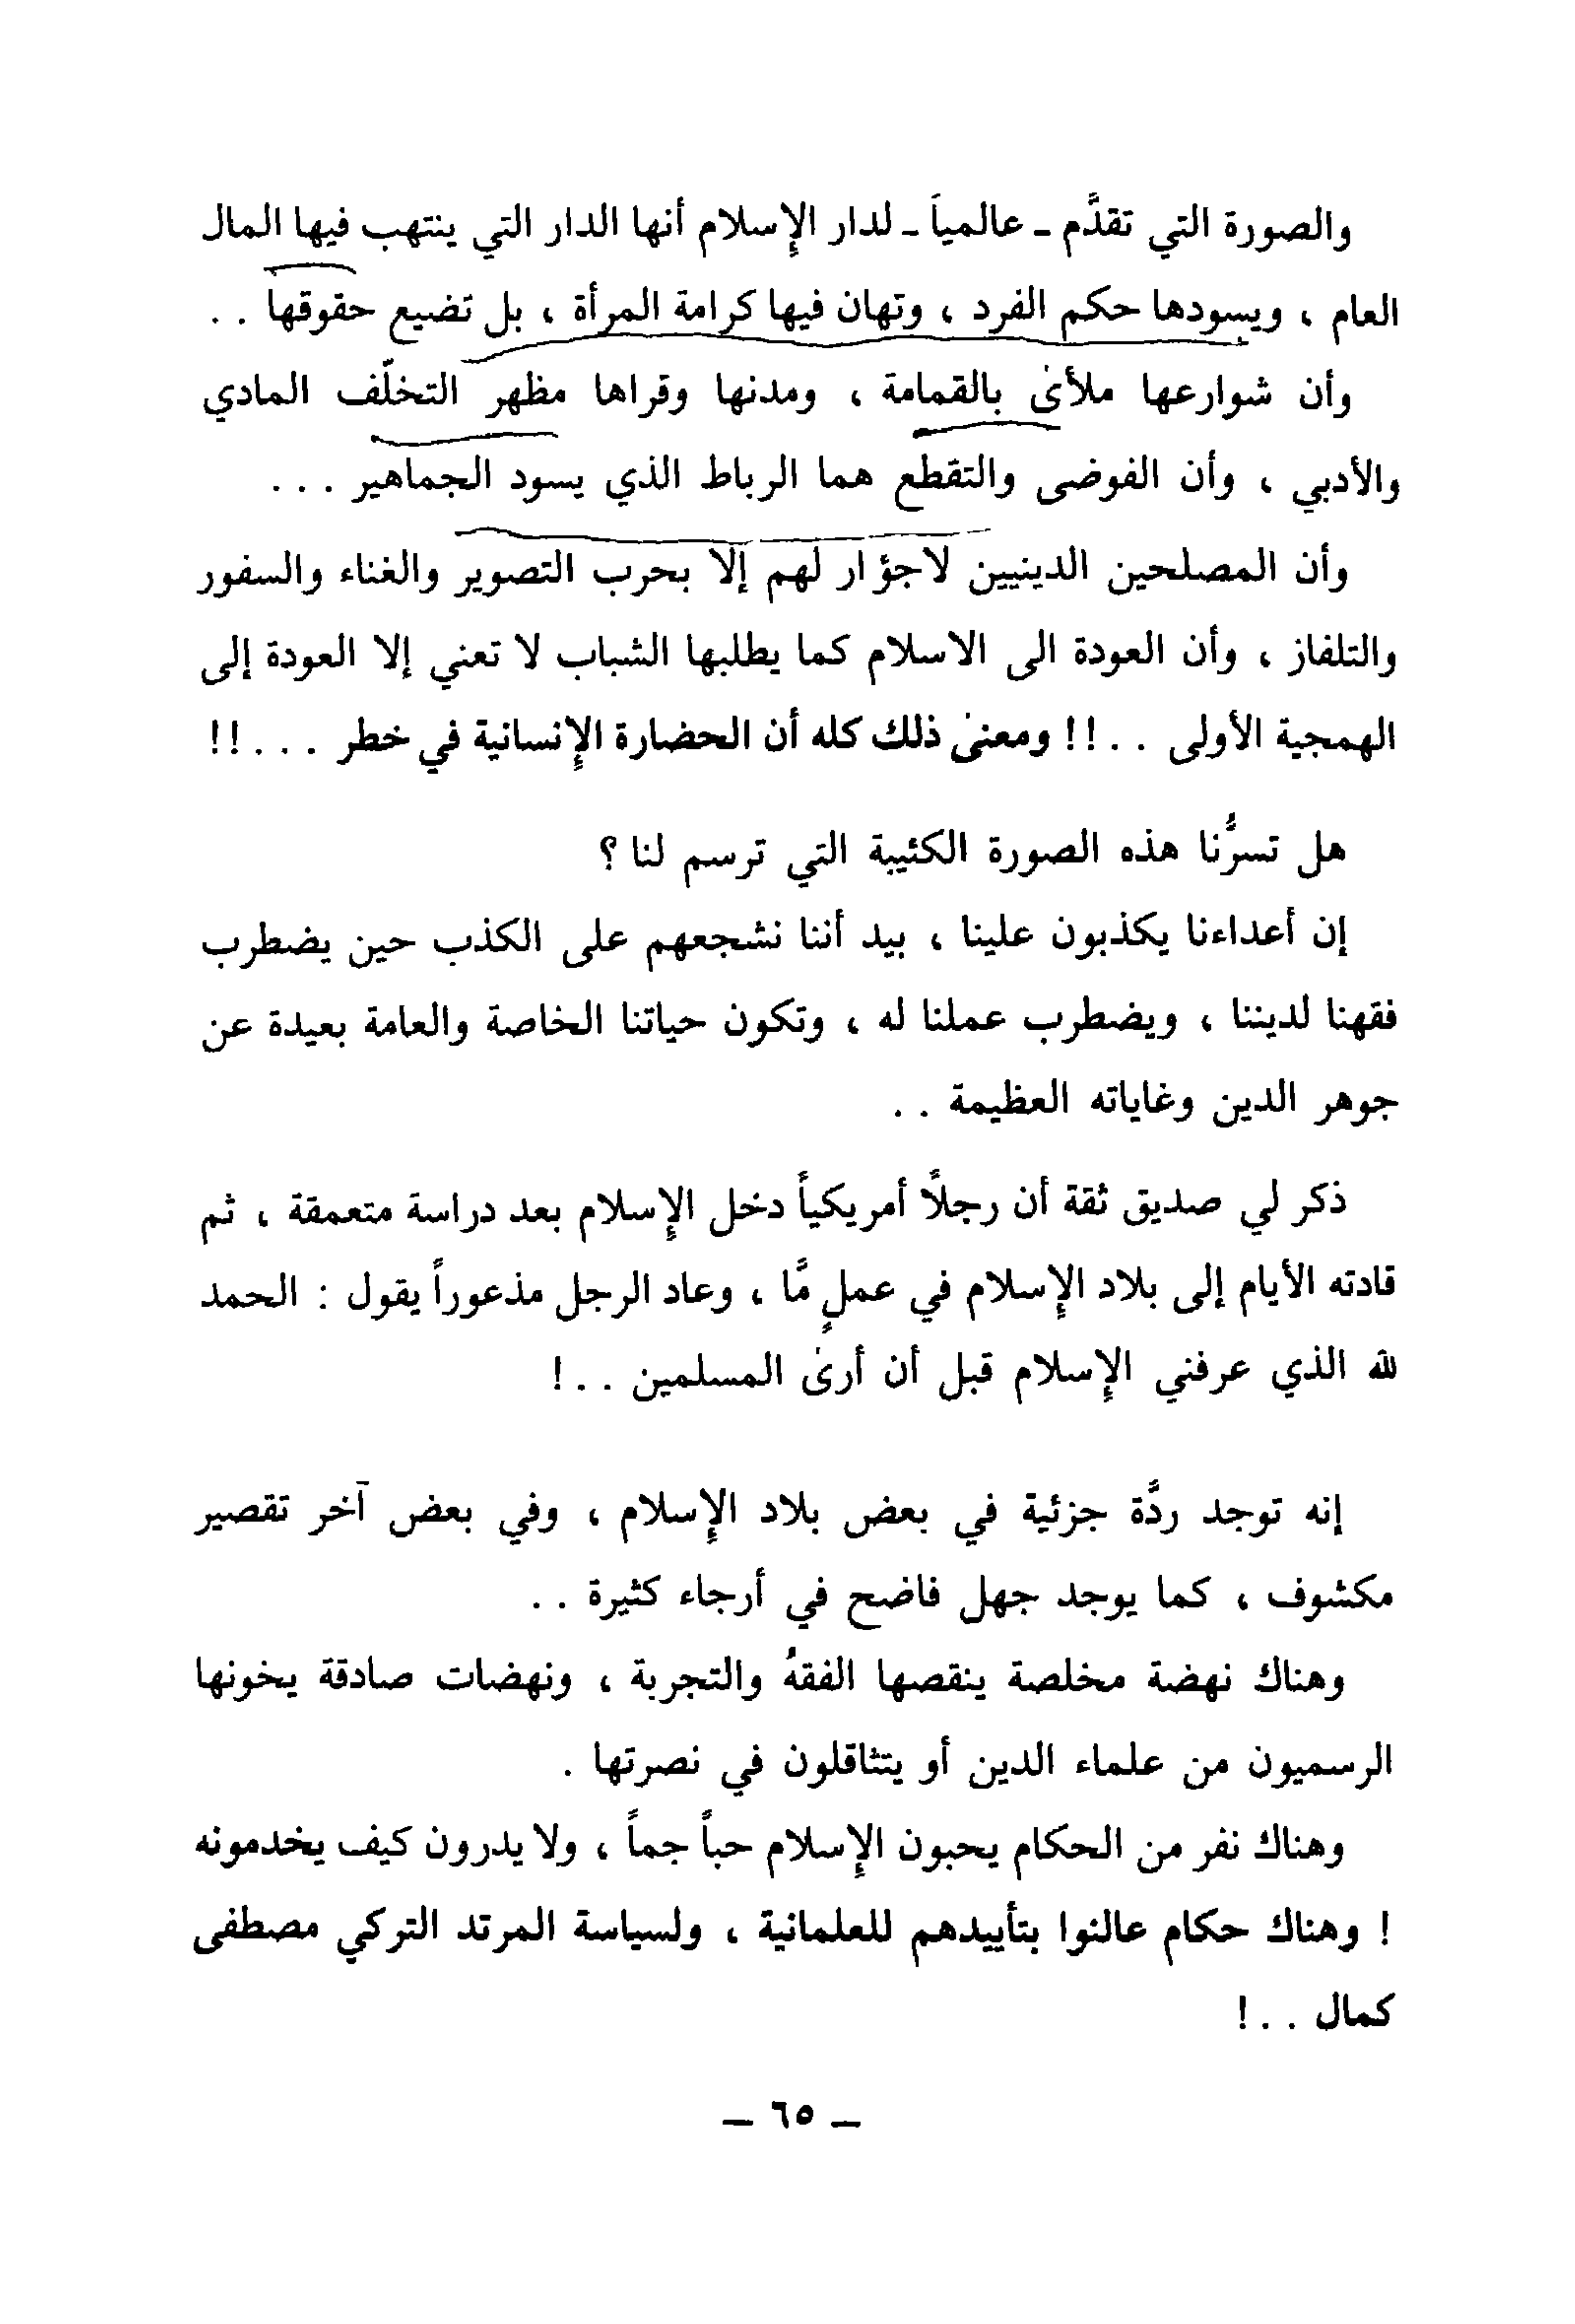 والصورة التي تقدَّم ـ عالمياً ـ لدار الإسلام أنها الدار التي ينتهب فيها المال
العام ، ويسودها حكم الفرد ، وتهان فيها كرامة المرأة ، بل تضيع حقوقها . .
وأن شوارعها ملأى بالقمامة ، ومدنها وقراها مظهر التخلّف المادي
والأدبي ، وأن الفوضى والتقطع هما الرباط الذي يسود الجماهير . . .
وأن المصلحين الدينيين لاجؤار لهم إلا بحرب التصوير والغناء والسفور
والتلفاز ، وأن العودة الى الاسلام كما يطلبها الشباب لا تعني إلا العودة إلى
الهمجية الأولى . . !! ومعنى ذلك كله أن الحضارة الإنسانية في خطر . . . !!
هل تسرُّنا هذه الصورة الكئيبة التي ترسم لنا ؟
إن أعداءنا يكذبون علينا ، بيد أننا نشجعهم على الكذب حين يضطرب
فقهنا لديننا ، ويضطرب عملنا له ، وتكون حياتنا الخاصة والعامة بعيدة عن
جوهر الدين وغاياته العظيمة . .
ذكر لي صديق ثقة أن رجلًا أمريكياً دخل الإسلام بعد دراسة متعمقة ، ثم
قادته الأيام إلى بلاد الإسلام في عملٍ مَّا ، وعاد الرجل مذعوراً يقول : الحمد
لله الذي عرفني الإسلام قبل أن أرى المسلمين . . !
إنه توجد ردَّة جزئية في بعض بلاد الإسلام ، وفي بعض آخر تقصير
مكشوف ، كما يوجد جهل فاضح في أرجاء كثيرة . .
وهناك نهضة مخلصة ينقصها الفقهُ والتجربة ، ونهضات صادقة يخونها
الرسميون من علماء الدين أو يتثاقلون في نصرتها .
وهناك نفر من الحكام يحبون الإسلام حباً جماً ، ولا يدرون كيف يخدمونه
! وهناك حكام عالنوا بتأييدهم للعلمانية ، ولسياسة المرتد التركي مصطفى
كمال . . !
ـ ٦٥ ـ